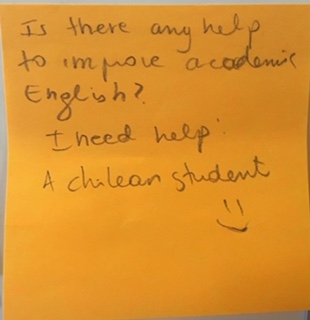 Is there any help
to improve academic
English?
I need help!
A chilean student